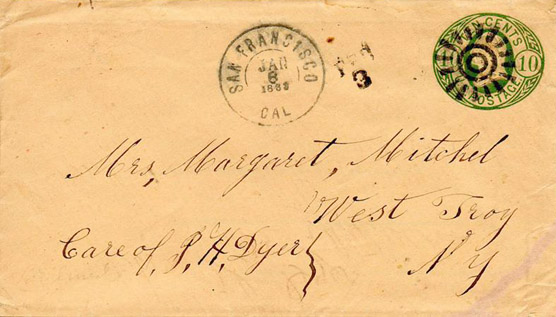 SAN FRANCISCO
JAN
6
CAL
3
TEN CENTS
10
POSTAGE
Mrs, Margaret, Mitchel
West Troy
Care of, S, H, Dyer
N Y